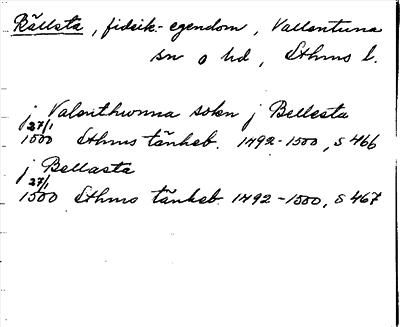 Bällsta, fidsik.-egendom, Vallentuna
sn o hd, Sthms l.
j Valenthwnna sokn j Bellesta
27/1
1500 Sthms tänkeb. 1492-1500, s 466
j Bellasta
27/1
1500 Sthms tänkeb. 1492-1500, s 467